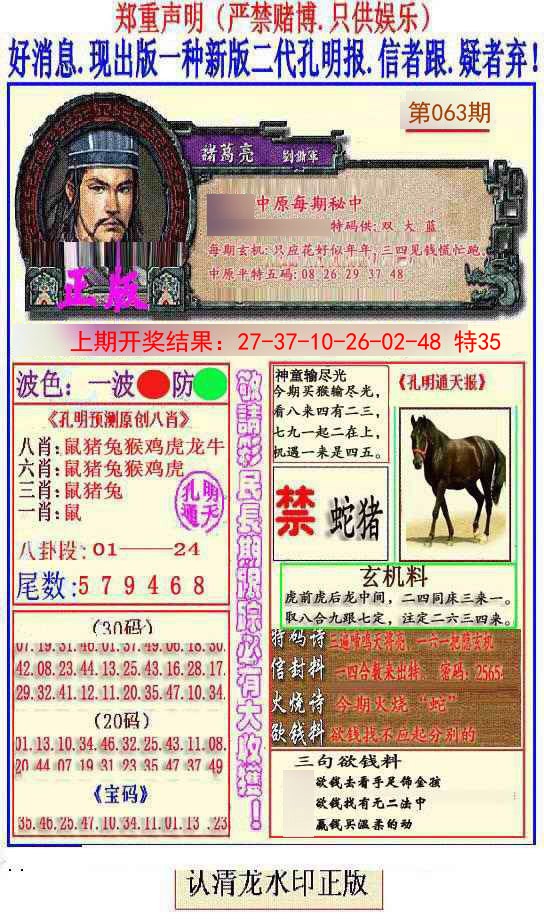 郑重声明（严禁赌博.只供娱乐）
好消息.现出版一种新版二代孔明报.信者跟.疑者弃!
第063期
諸葛亮 劉鐵軍
中原每期秘中
特码供:双 大 蓝
每期玄机:只应花好似年年,三四见钱慌忙跑.
中原平特五码:08 26 29 37 48
正版
上期开奖结果：27-37-10-26-02-48 特35
波色：一波 防
《孔明预测原创八肖》
八肖:鼠猪兔猴鸡虎龙牛
六肖:鼠猪兔猴鸡虎
三肖:鼠猪兔
一肖:鼠
孔明
通天
八卦段:01——24
尾数:579468
(30码)
07.19.31.46.01.37.49.06.18.30.
42.08.23.44.13.25.43.16.28.17.
29.32.41.12.11.20.35.47.10.34.
(20码)
01.13.10.34.46.32.25.43.11.08.
20.44.07.19.31.23.35.47.37.49
《宝码》
35.46.25.47.10.34.11.01.13.23
敬請彩民長期跟踪必有大收獲！
神童输尽光
今期买猴输尽光，
看八来四有二三，
七九一起二在上，
机遇一来是四五。
《孔明通天报》
禁 蛇猪
玄机料
虎前虎后龙中间，二四同床三来一。
取八合九跟七定，注定二六三四来。
特码诗
信封料 一四合数来出特. 密码:2565
火烧诗 今期火烧“蛇”
欲钱料 欲钱找不应起分别的
三句欲钱料
欲钱去看手足饰金孩
欲钱找有无二法中
赢钱买温柔的动
认清龙水印正版